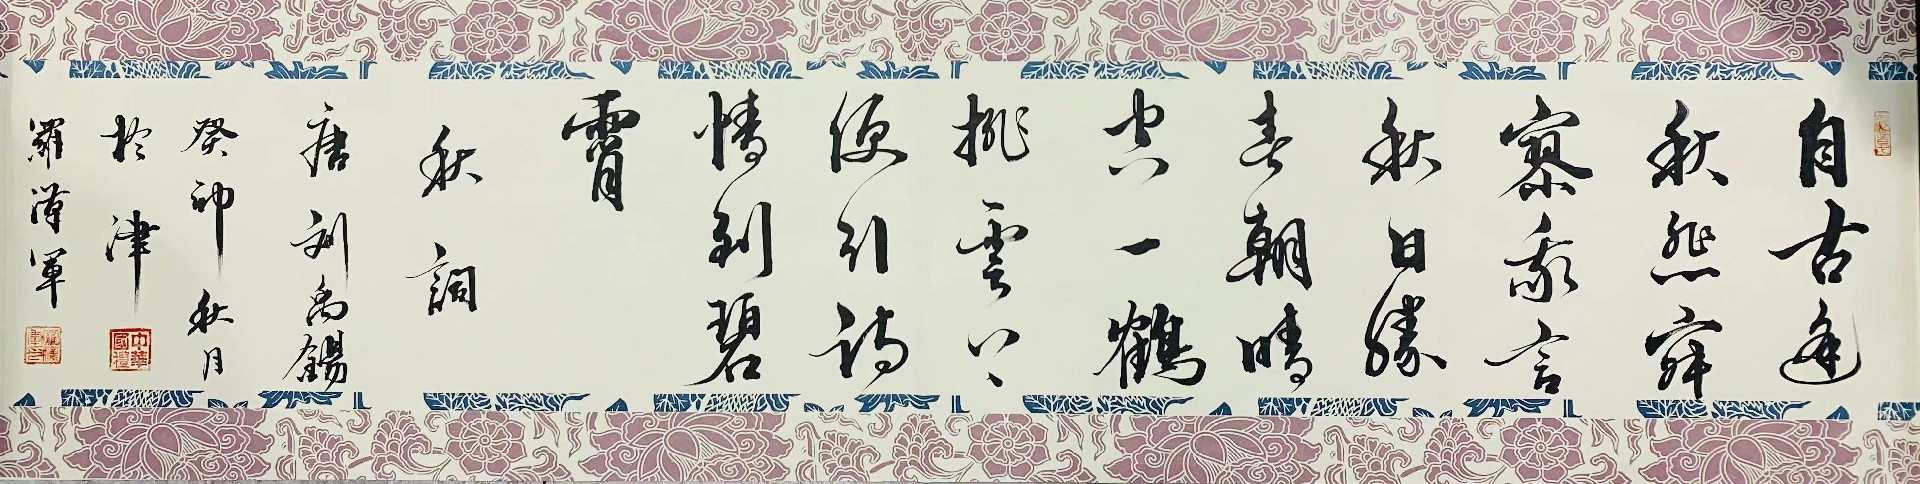 自古逢
秋悲寂
寥我言
秋日勝
春朝晴
空一鶴
排雲上
便引詩
情到碧
霄
秋詞
唐刘禹錫
癸卯秋月
於津
中華國禮
羅漢軍